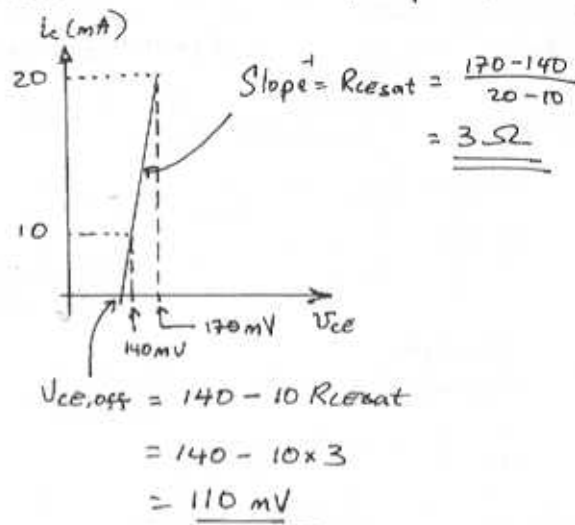 ic (mA)
20
Slope⁻¹ = RCEsat = 170-140 / 20-10
= 3 Ω
10
υce
170 mV
140 mV
VCE,off = 140 - 10 RCEsat
= 140 - 10 x 3
= 110 mV